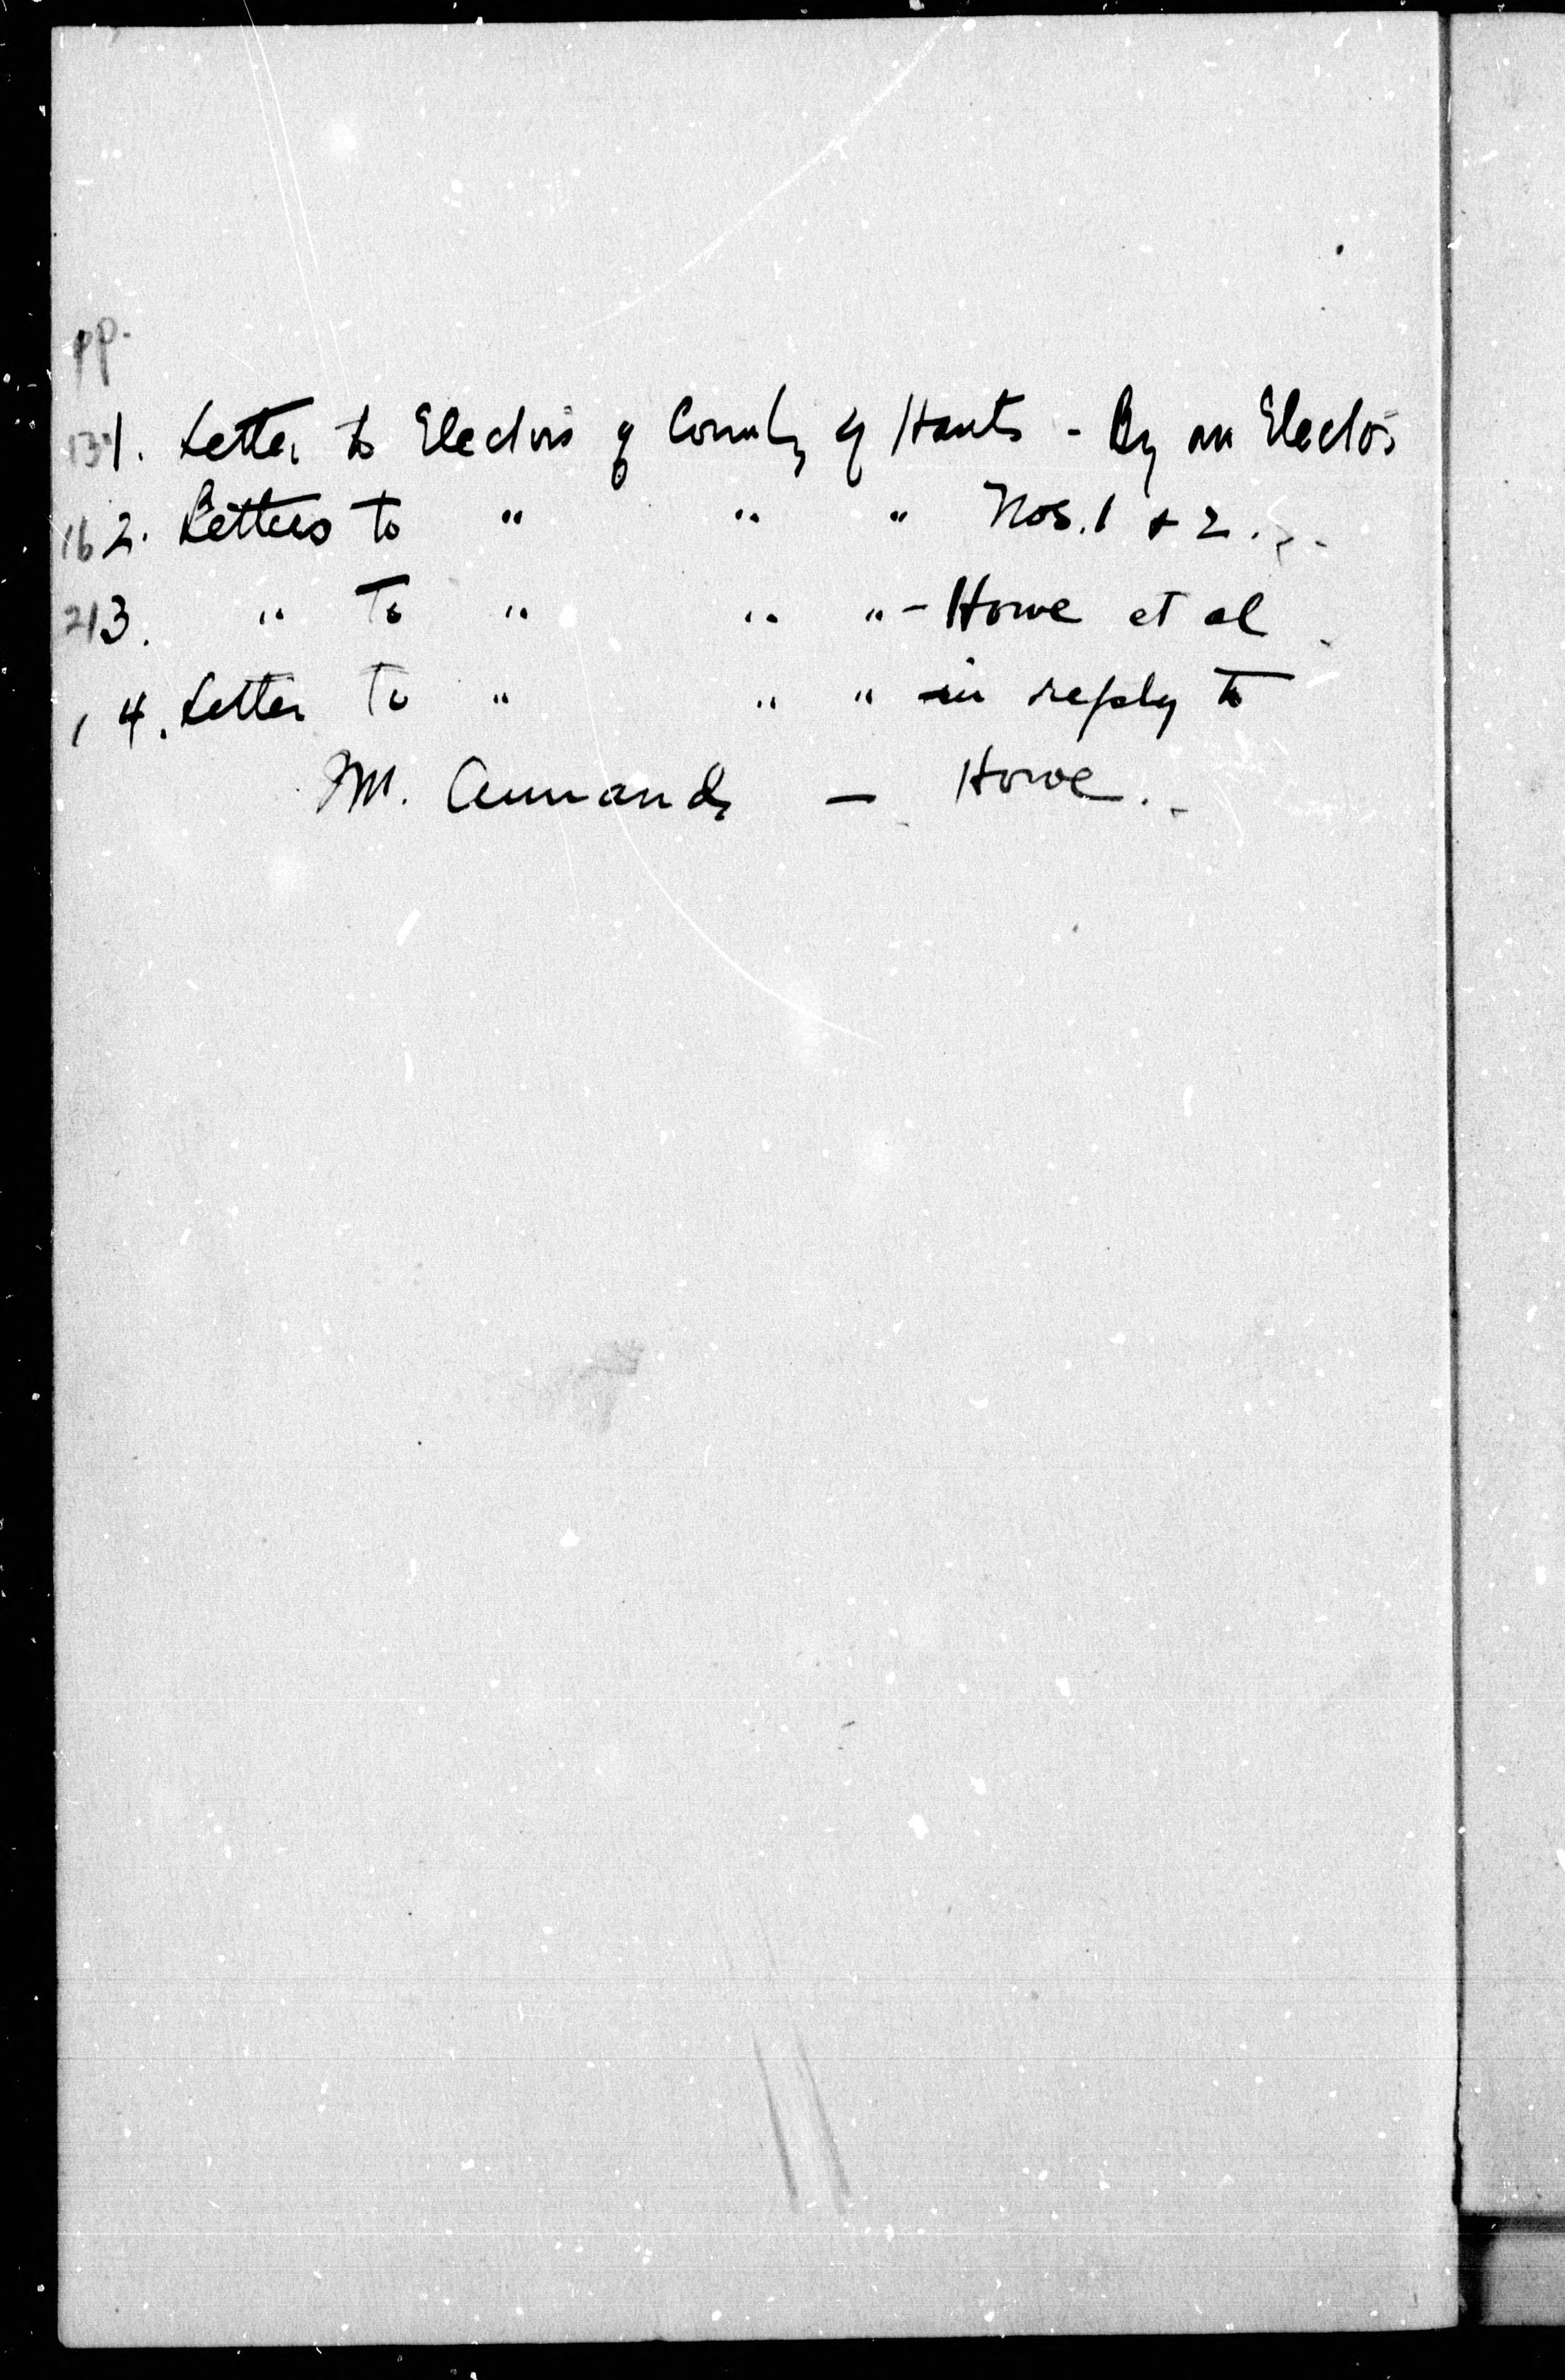 pp.
13 1. Letter to Electors of County of Hants - By an Elector
16 2. Letters to " " " Nos. 1 & 2.
21 3. " To " " " - Howe et al
1 4. Letter To " " " in reply to
M. Annand's — Howe.